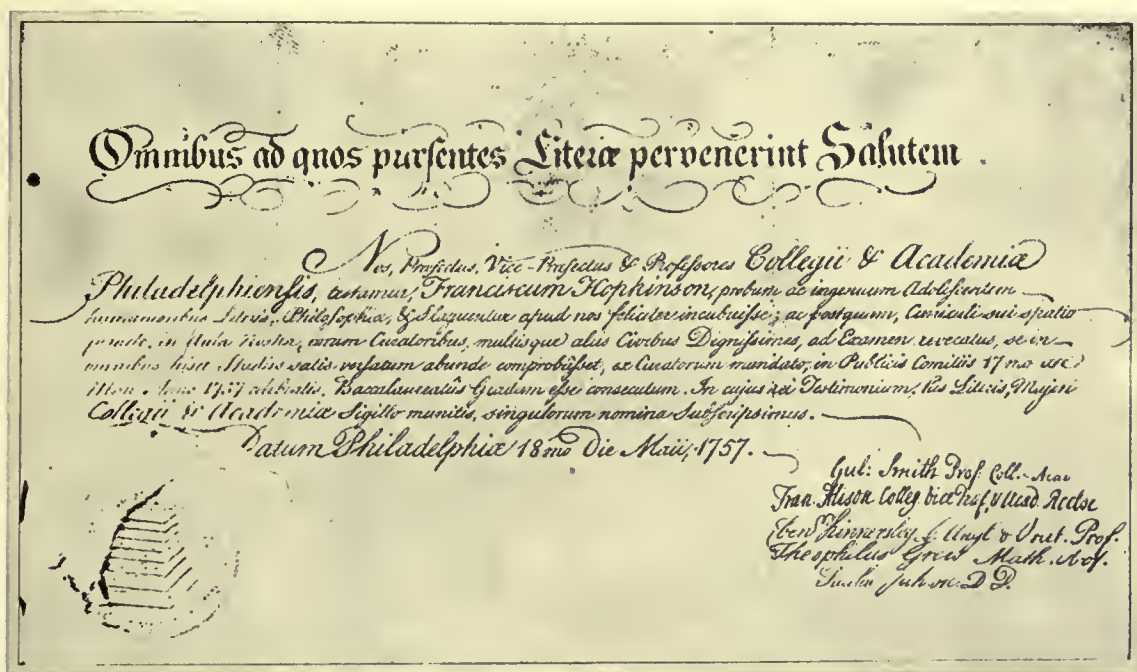 Omnibus ad quos pursentes Literæ pervenerint Salutem.
Nos, Præfectus, Vice-Præfectus & Professores Collegii & Academiæ
Philadelphiensis, testamur, Franciscum Hopkinson, probum ac ingenuum Adolescentem
humanioribus Literis, Philosophiæ, & Eloquentiæ apud nos feliciter incubuisse; ac postquam, Curriculi sui spatio
in Aula nostra, coram Curatoribus, multisque aliis Civibus Dignissimis, ad Examen revocatus, se in
omnibus hisce Studiis satis versatum abunde comprobâsset, ex Curatorum mandato, in Publicis Comitiis 17mo
1757 celebratis, Baccalaureatûs Gradum esse consecutum. In cujus rei Testimonium, his Literis, Majori
Collegii & Academiæ Sigillo munitis, singulorum nomina Subscripsimus.
Datum Philadelphiæ 18mo Die Maii, 1757.
Gul: Smith Prof. Coll.
Fran. Alison Colleg. vice Præf. & Acad. Rector
Kinnersley & Orat. Prof.
Theophilus Grew Math. Prof.